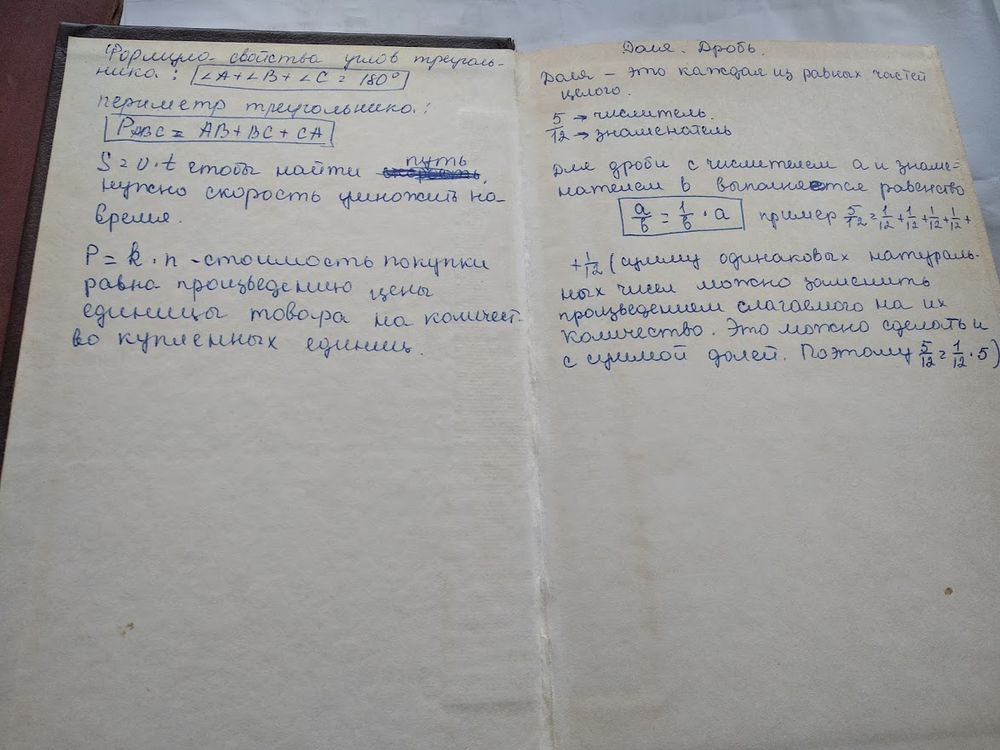 Формула свойства углов треуголь-
ника: ∠A+∠B+∠C = 180°
периметр треугольника:
PABC = AB+BC+CA
S = υ·t чтобы найти путь
нужно скорость умножить на
время.
P = k·n - стоимость покупки
равна произведению цены
единицы товара на количест-
во купленных единиц.
Доля. Дробь.
Доля – это каждая из равных частей
целого.
5 → числитель.
12 → знаменатель
Для дроби с числителем а и знаме-
нателем в выполняется равенство
a/в = 1/в · a пример 5/12 = 1/12 + 1/12 + 1/12 + 1/12 +
+ 1/12 (сумму одинаковых натураль-
ных чисел можно заменить
произведением слагаемого на их
количество. Это можно сделать и
с суммой долей. Поэтому 5/12 = 1/12 · 5)